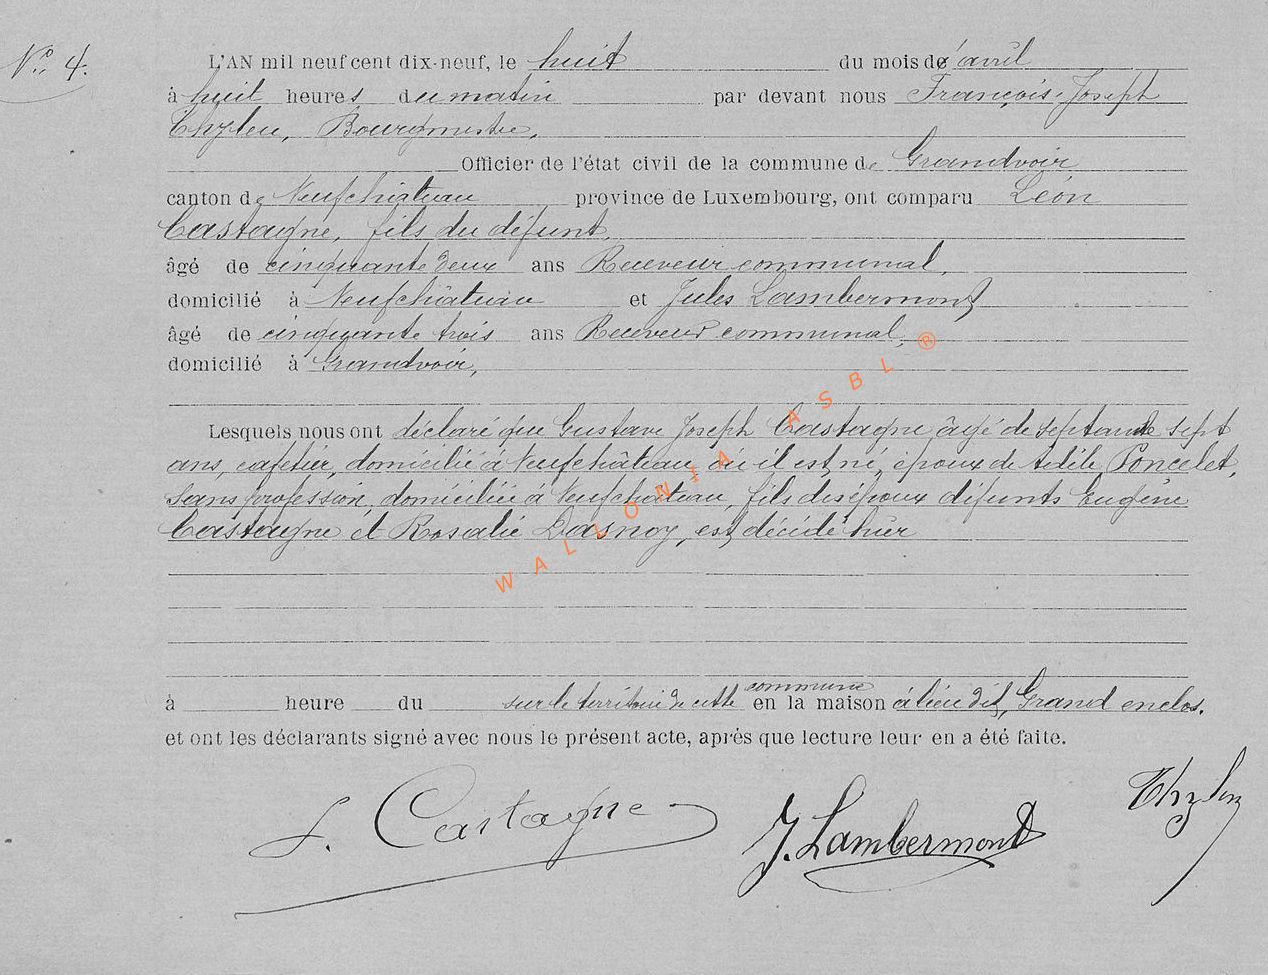 N° 4.
L'AN mil neuf cent dix-neuf, le huit du mois d'avril
à huit heures du matin par devant nous François-Joseph
Thyleu, Bourgmestre,
Officier de l'état civil de la commune de Grandvoir
canton de Neufchâteau province de Luxembourg, ont comparu Léon
Castaigne, fils du défunt,
âgé de cinquante deux ans Receveur communal,
domicilié à Neufchâteau et Jules Lambermont
âgé de cinquante trois ans Receveur communal,
domicilié à Grandvoir,
Lesquels nous ont déclaré que Gustave Joseph Castaigne âgé de septante sept
ans, cafetier, domicilié à Neufchâteau où il est né, époux de Adèle Poncelet,
sans profession, domiciliée à Neufchâteau, fils des époux défunts Eugène
Castaigne et Rosalie Dasnoy, est décédé hier
à heure du sur le territoire de cette commune en la maison à lieu dit, Grand enclos.
et ont les déclarants signé avec nous le présent acte, après que lecture leur en a été faite.
L. Castagne J. Lambermont
WALLONIA ASBL ®